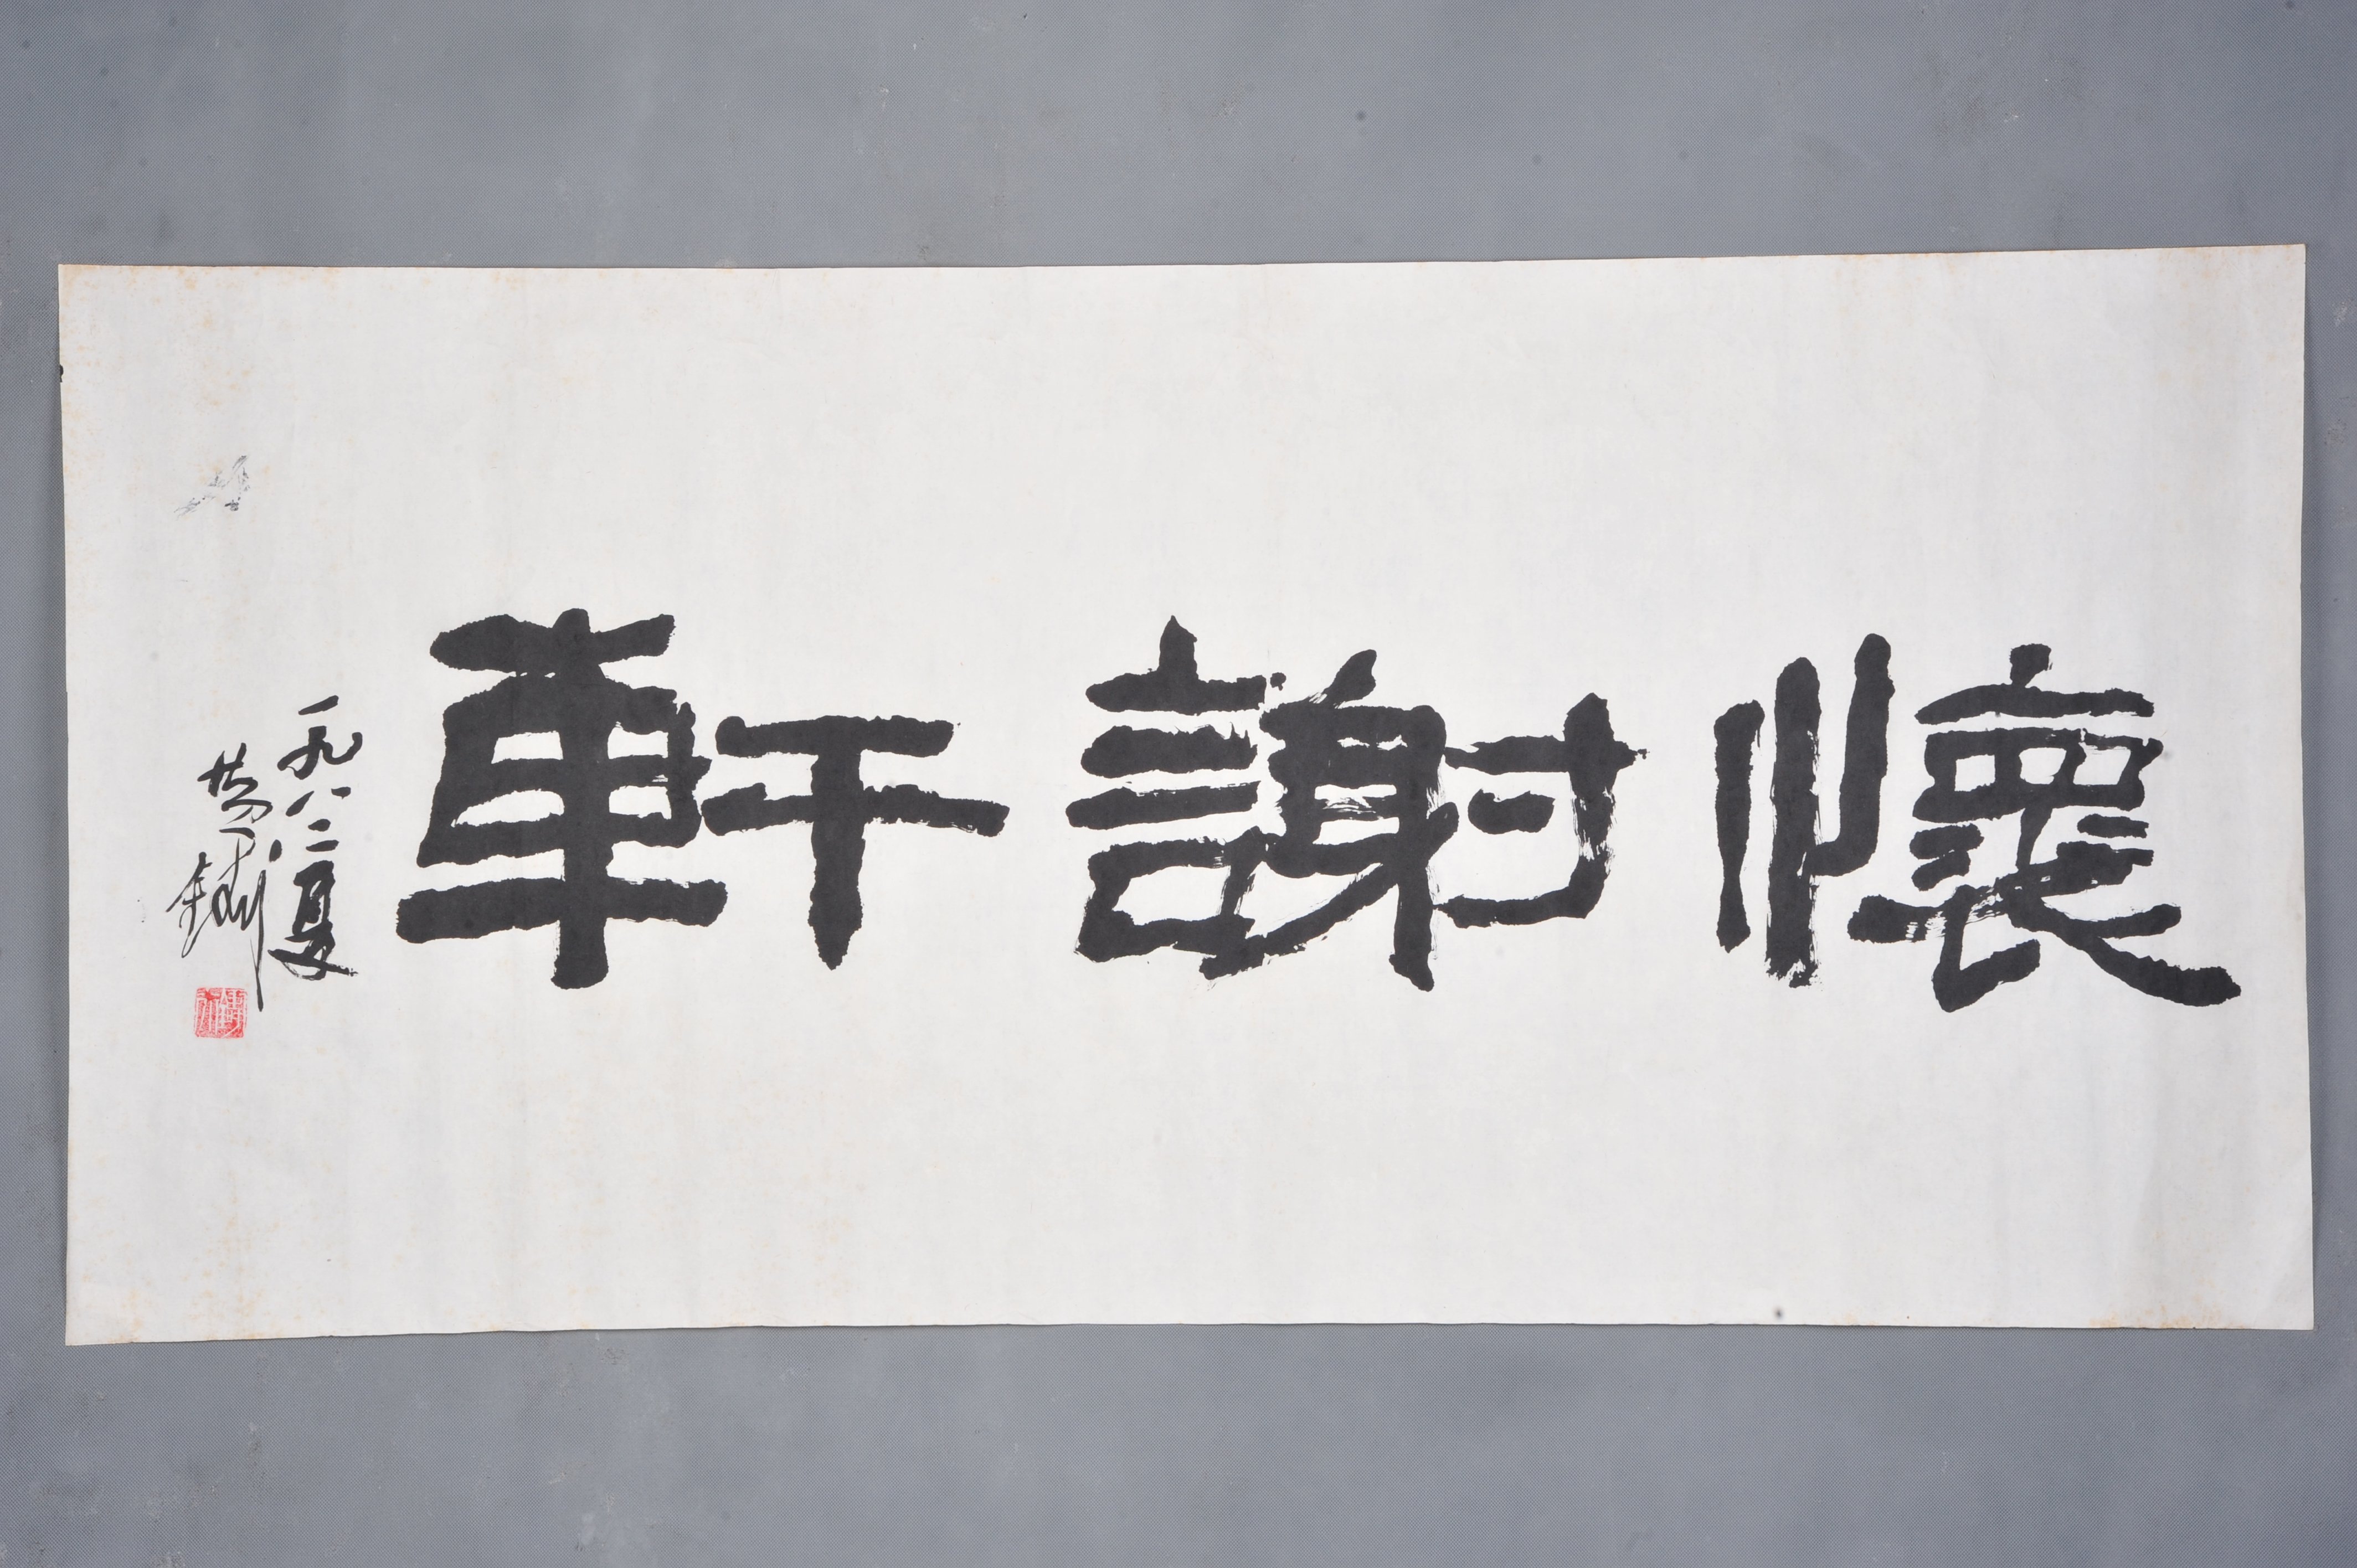 懷謝軒
一九八二夏
黄鏞